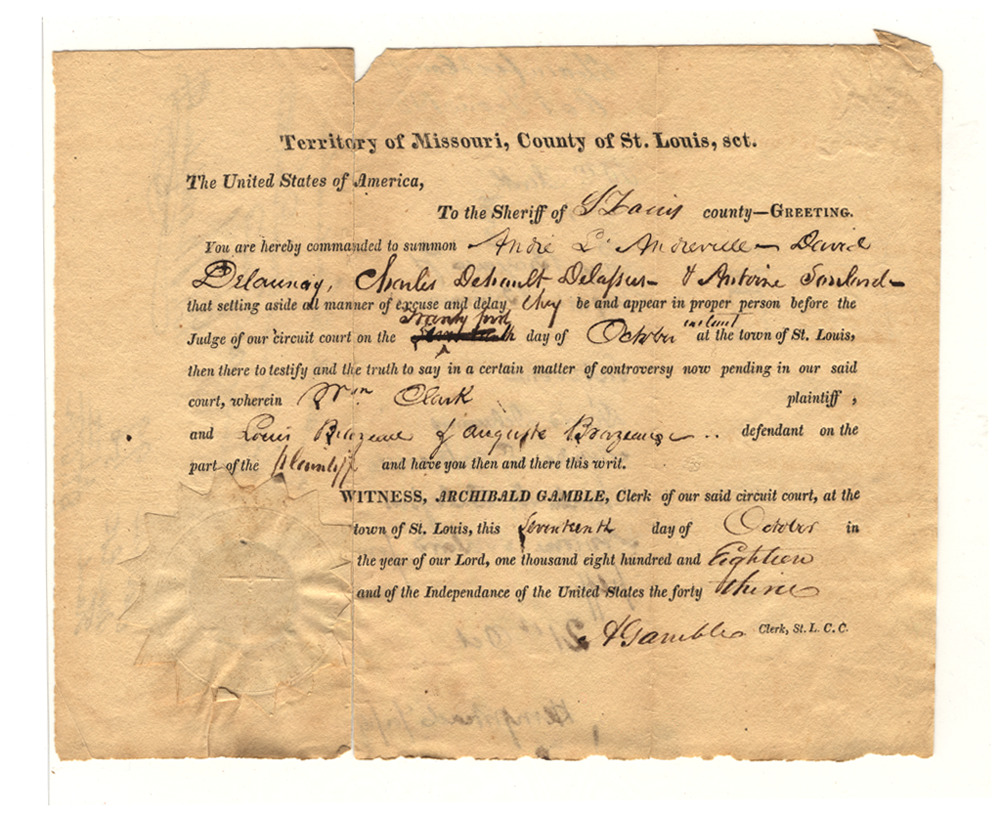 Territory of Missouri, County of St. Louis, sct.
The United States of America,
To the Sheriff of St Louis county—GREETING.
You are hereby commanded to summon Andre L. Andreville – David
Delaunay, Charles Dehault Delassus – & Antoine Soulard –
that setting aside all manner of excuse and delay they be and appear in proper person before the
twenty first
Judge of our circuit court on the day of October instant at the town of St. Louis,
then there to testify and the truth to say in a certain matter of controversy now pending in our said
court, wherein Wm Clark plaintiff,
and Louis Brazeau & Auguste Brazeau – .. defendant on the
part of the plaintiff and have you then and there this writ.
WITNESS, ARCHIBALD GAMBLE, Clerk of our said circuit court, at the
town of St. Louis, this Seventeenth day of October in
the year of our Lord, one thousand eight hundred and Eighteen
and of the Independance of the United States the forty third
A Gamble Clerk, St. L. C. C.